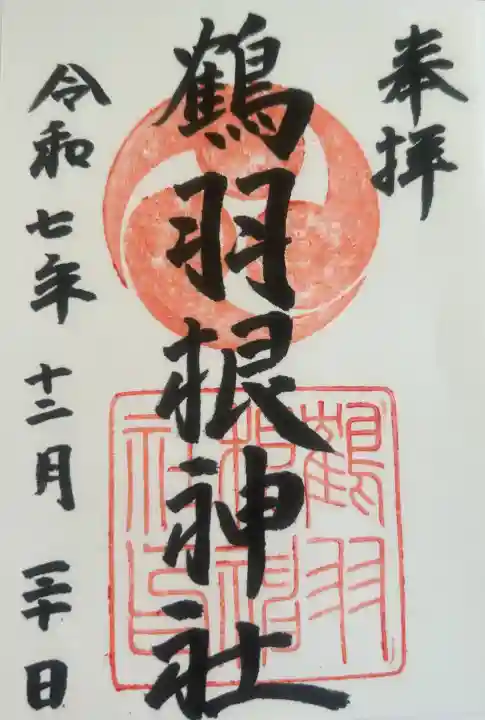 奉拝
鶴羽根神社
令和七年十二月三十日
鶴羽
根神
社印